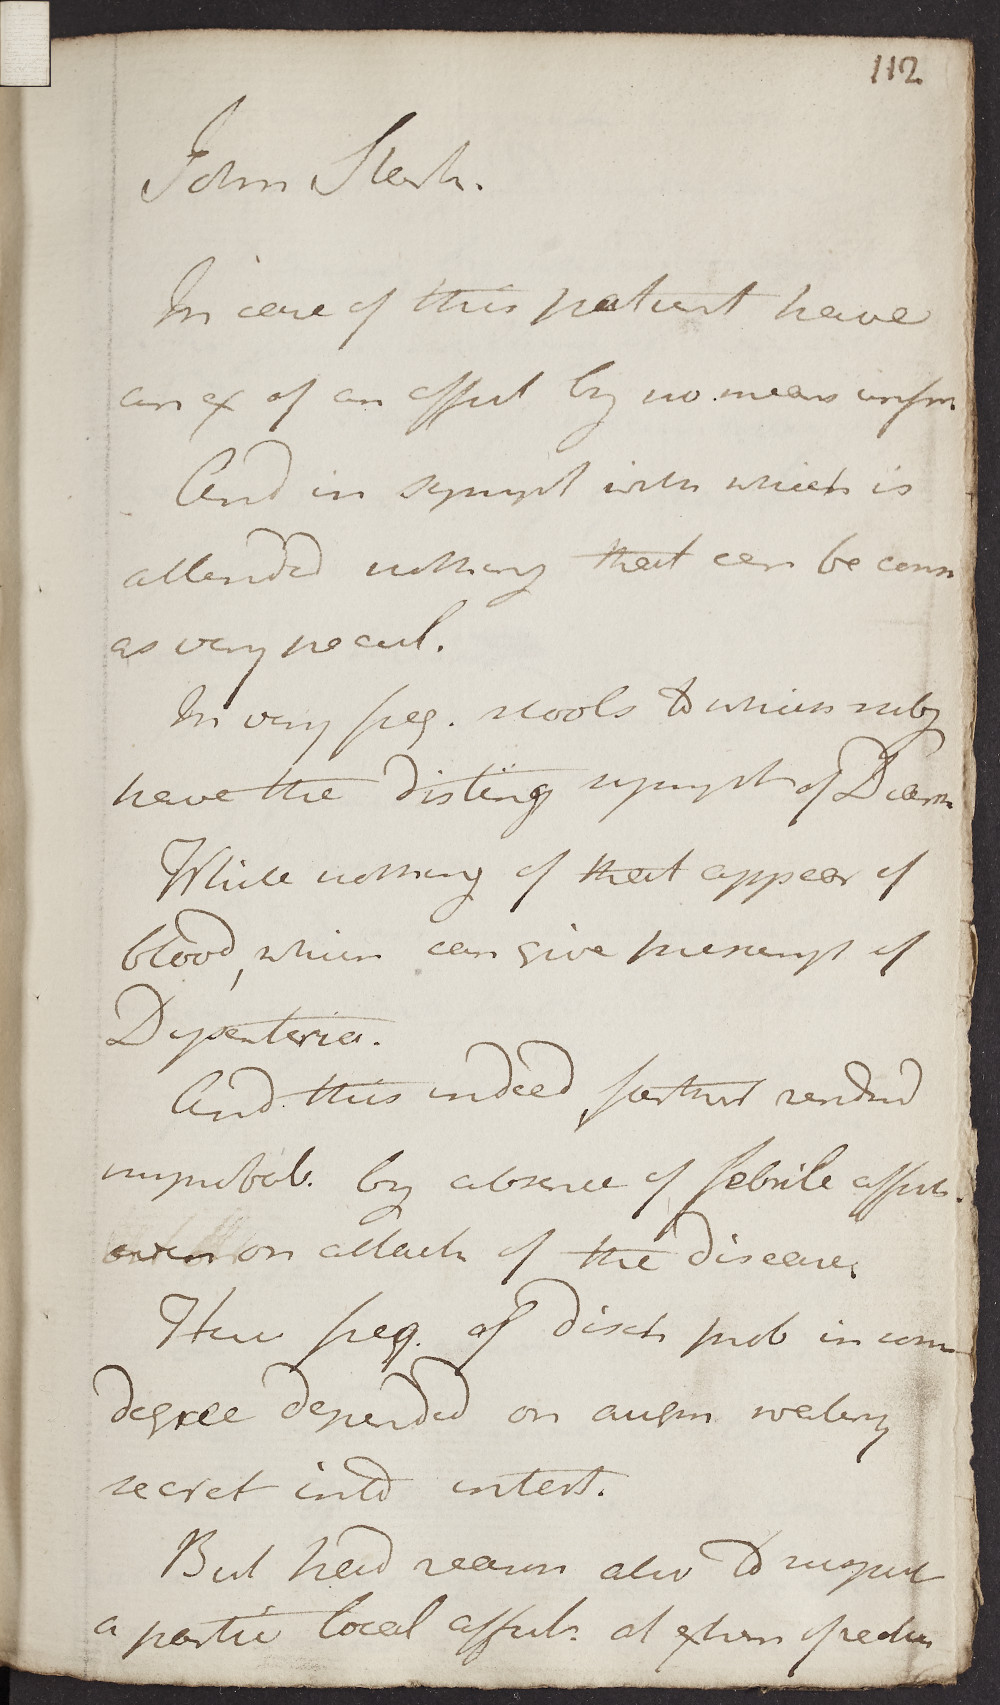 112
John Stark.
In case of this patient have
an ex of an affect by no means unfr
And in sympt with which is
attended nothing that can be cons
as very pecul.
In very freq. stools to which subj
have the disting sympt of Diarr
While nothing of that appear of
blood, which can give presumpt of
Dysenteria.
And this indeed farther rendred
improbab. by absence of febrile affect.
even on attack of the disease.
Here freq. of disch prob in com
degree depended on augm watery
secret into intest.
But had reason also to suspect
a partic local affect. at extrem of rectum